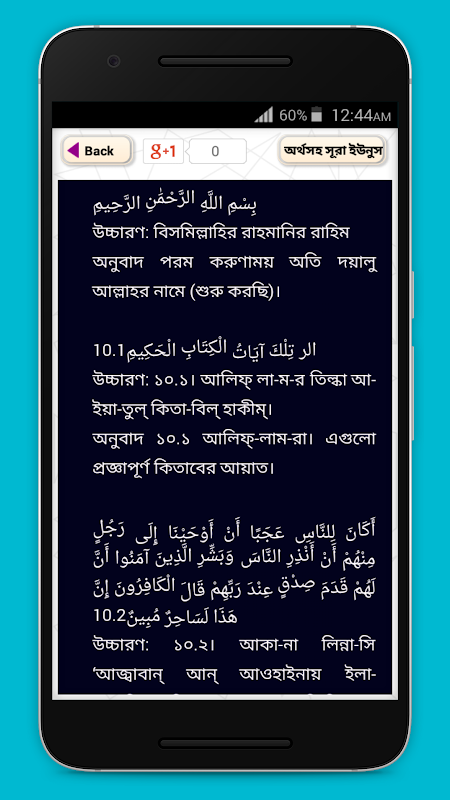 60% 12:44AM
Back g+1 0 অর্থসহ সূরা ইউনুস
بِسْمِ اللَّهِ الرَّحْمَٰنِ الرَّحِيمِ
উচ্চারণ: বিসমিল্লাহির রাহমানির রাহিম
অনুবাদ পরম করুণাময় অতি দয়ালু
আল্লাহর নামে (শুরু করছি)।
10.1الر تِلْكَ آيَاتُ الْكِتَابِ الْحَكِيمِ
উচ্চারণ: ১০.১। আলিফ্ লা-ম-র তিল্কা আ-
ইয়া-তুল্ কিতা-বিল্ হাকীম্।
অনুবাদ ১০.১ আলিফ্-লাম-রা। এগুলো
প্রজ্ঞাপূর্ণ কিতাবের আয়াত।
أَكَانَ لِلنَّاسِ عَجَبًا أَنْ أَوْحَيْنَا إِلَى رَجُلٍ
مِنْهُمْ أَنْ أَنْذِرِ النَّاسَ وَبَشِّرِ الَّذِينَ آمَنُوا أَنَّ
لَهُمْ قَدَمَ صِدْقٍ عِنْدَ رَبِّهِمْ قَالَ الْكَافِرُونَ إِنَّ
هَذَا لَسَاحِرٌ مُبِينٌ10.2
উচ্চারণ: ১০.২। আকা-না লিন্না-সি
‘আজ্বাবান্ আন্ আওহাইনায় ইলা-